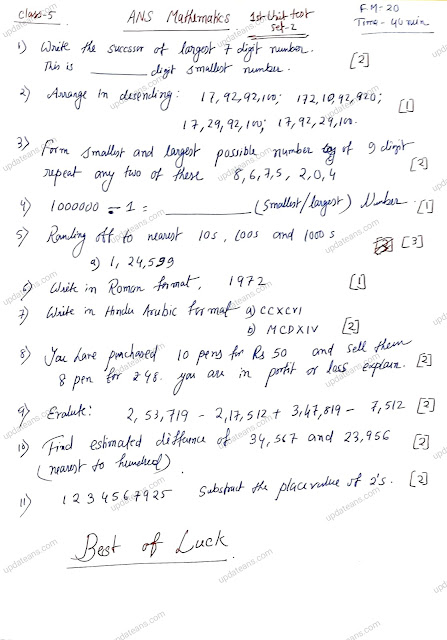 Class-5 ANS Mathematics 1st Unit test F.M-20
Set-2 Time - 40 min
1) Write the successor of largest 7 digit number.
This is ________ digit smallest number. [2]
2) Arrange in desending: 17,92,92,100; 172,10,92,920; [1]
17,29,92,100; 17,92,29,100.
3) Form smallest and largest possible number of 9 digit [2]
repeat any two of these 8,6,7,5, 2,0,4
4) 1000000 - 1 = ________ (smallest/largest) Number. [1]
5) Randing off to nearest 10s, 100s and 1000s [3]
a) 1,24,599
6) Write in Roman format, 1972 [1]
7) Write in Hindu Arabic format a) CCXCVI
b) MCDXIV [2]
8) You have purchased 10 pens for Rs 50 and sell them
8 pen for ₹48. you are in profit or loss explain. [2]
9) Evalute: 2,53,719 - 2,17,512 + 3,47,819 - 7,512 [2]
10) Find estimated diffance of 34,567 and 23,956 [2]
(nearest to hundred)
11) 1234567925 Substract the place value of 2's. [2]
Best of Luck
updateans.com